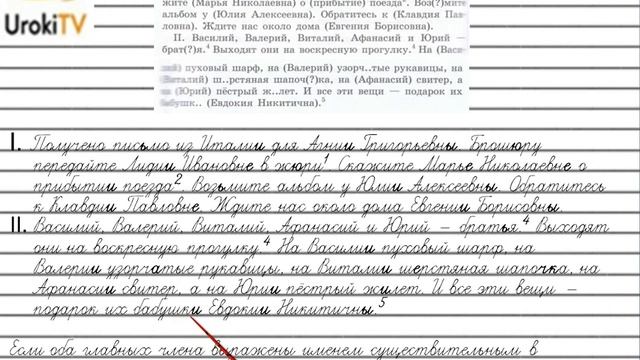 UrokiTV
жите (Марья Николаевна) о (прибытие) поезда². Воз(?)мите
альбом у (Юлия Алексеевна). Обратитесь к (Клавдия Пав-
ловна). Ждите нас около дома (Евгения Борисовна).
II. Василий, Валерий, Виталий, Афанасий и Юрий —
брат(?)я.⁴ Выходят они на воскресную прогулку.⁴ На (Васи-
лий) пуховый шарф, на (Валерий) узорч..тые рукавицы, на
(Виталий) ш..рстяная шапоч(?)ка, на (Афанасий) свитер, а
на (Юрий) пёстрый ж..лет. И все эти вещи — подарок их
бабушк.. (Евдокия Никитична).⁵
I. Получено письмо из Италии для Агнии Григорьевны. Брошюру
передайте Лидии Ивановне в жюри¹. Скажите Марье Николаевне о
прибытии поезда². Возьмите альбом у Юлии Алексеевны. Обратитесь
к Клавдии Павловне. Ждите нас около дома Евгении Борисовны.
II. Василий, Валерий, Виталий, Афанасий и Юрий – братья.⁴ Выходят
они на воскресную прогулку.⁴ На Василии пуховый шарф, на
Валерии узорчатые рукавицы, на Виталии шерстяная шапочка, на
Афанасии свитер, а на Юрии пёстрый жилет. И все эти вещи –
подарок их бабушки Евдокии Никитичны.⁵
Если оба главных члена выражены именем существительным в